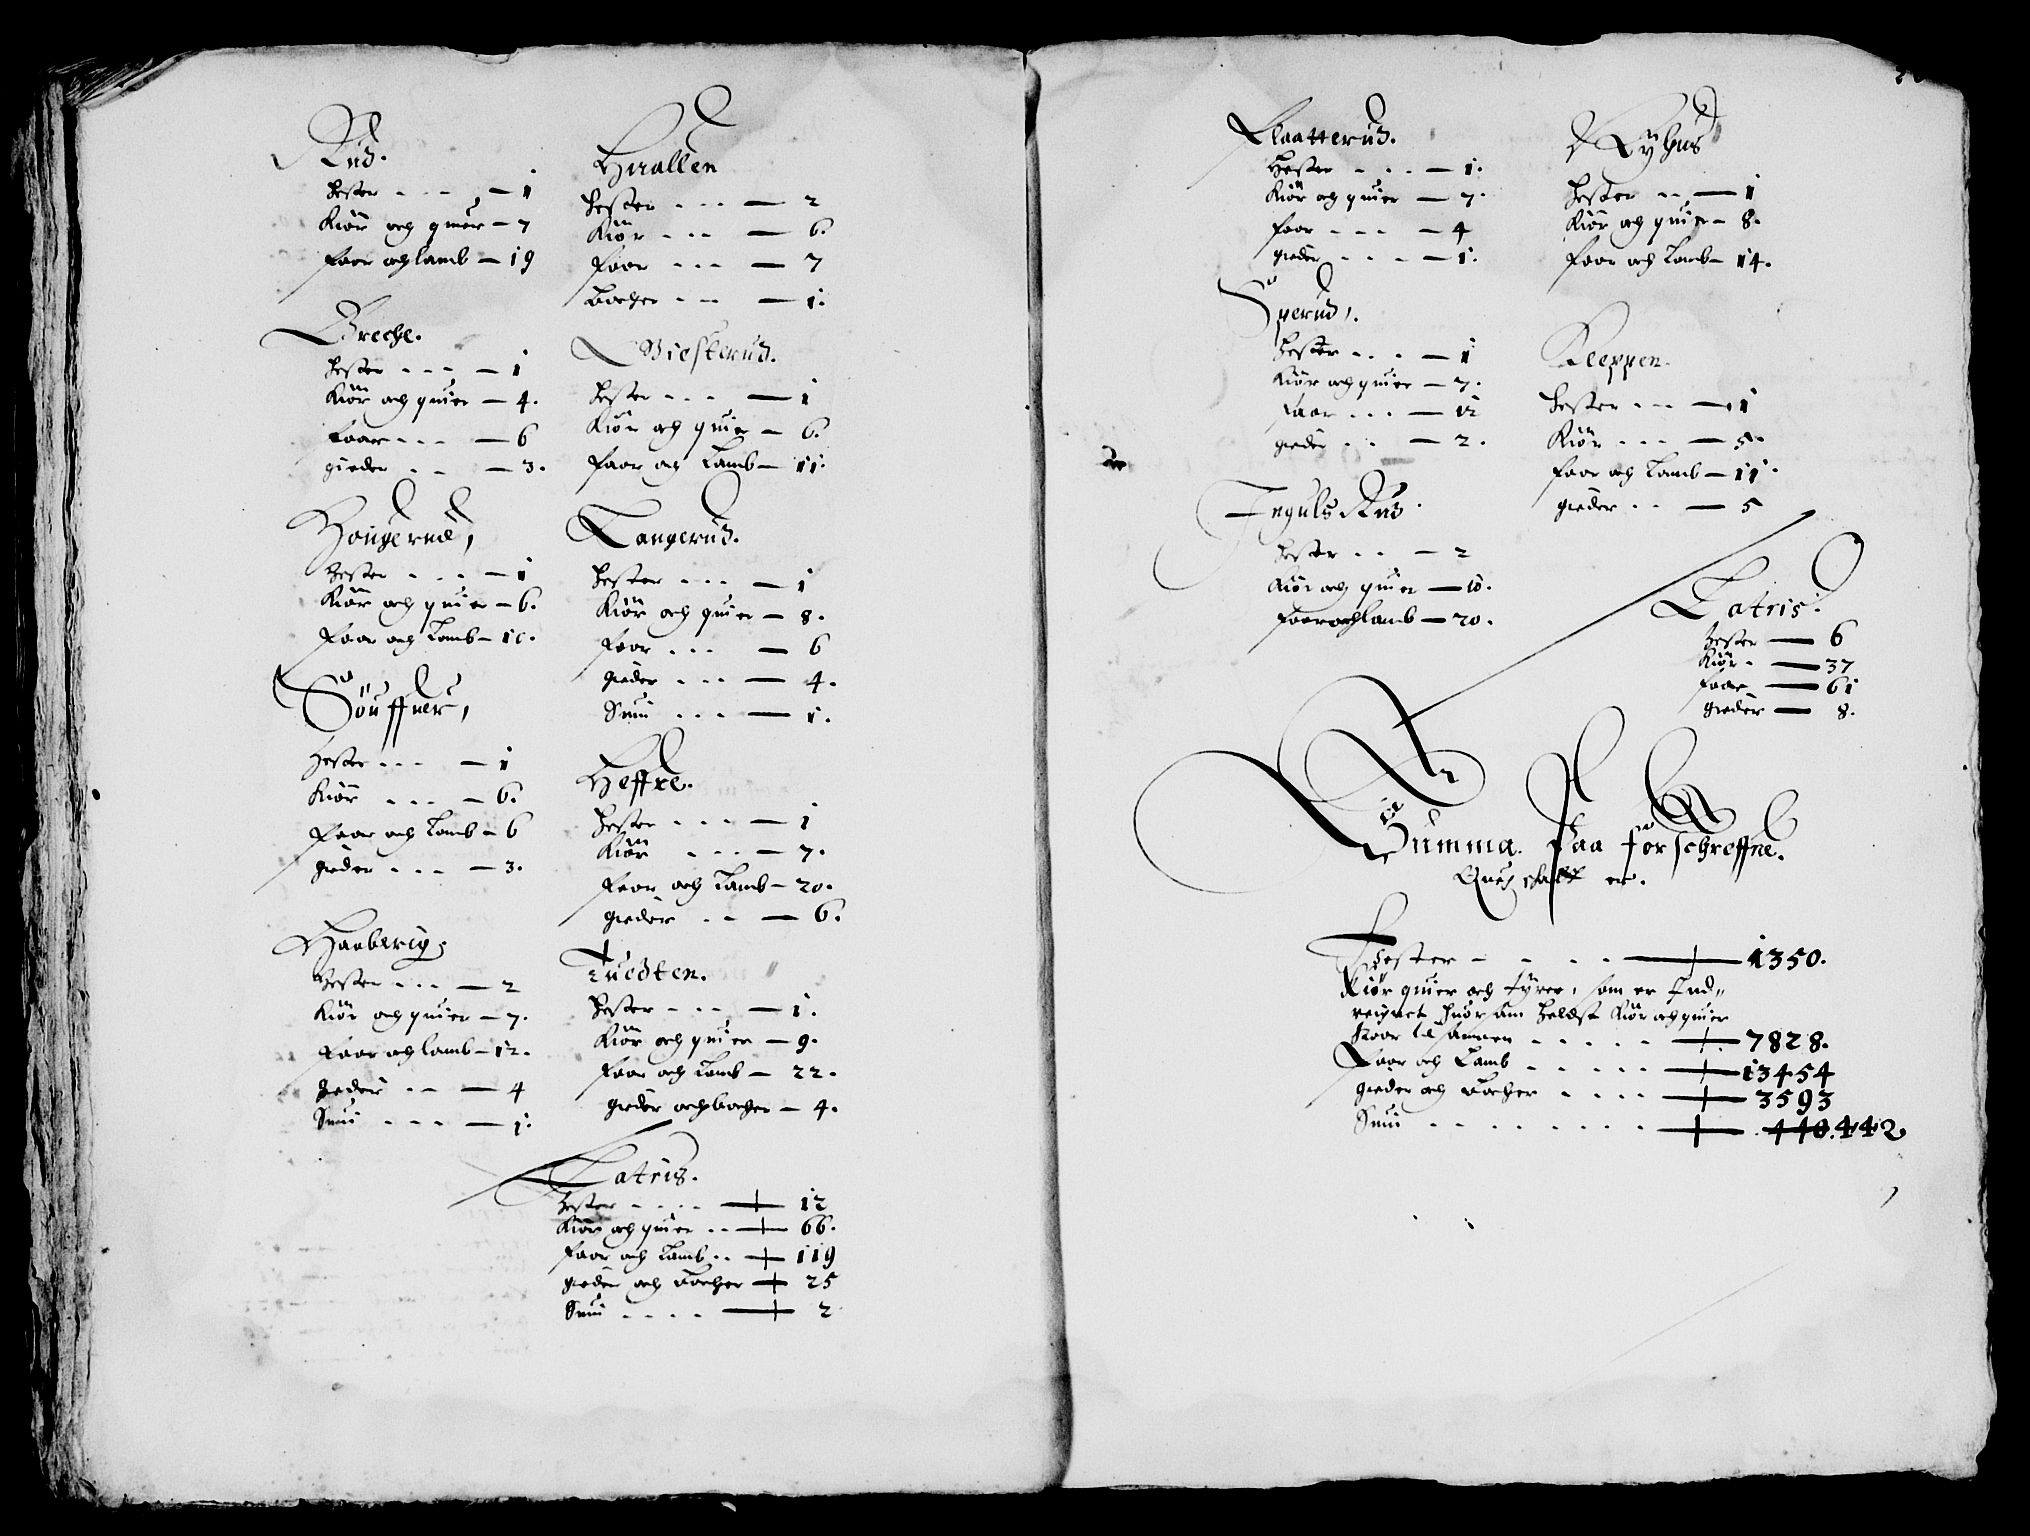 Rud.
Hester - - - — 1
Kiør och quier — 7
faar och lamb — 19
Breche.
Hester - - - — 1
Kiør och quier — 4.
faar - - - — 6
gieder - - — 3.
Hougerud,
Hester - - - — 1
Kiør och quier — 6.
faar och Lamb — 10.
Søuffner,
Hester - - - — 1
Kiør - - - — 6.
faar och Lamb — 6
gieder - - - — 3.
Haaberig,
Hester - - - — 2
Kiør och quier — 7.
faar och lamb — 12.
gieder - - — 4
Suin - - - — 1.
Huallen
Hester - - - — 2
Kiør - - - — 6.
faar - - - — 7
Bocher - - — 1.
Giesterud.
Hester - - - — 1
Kiør och quier — 6.
faar och Lamb — 11.
Tangerud.
Hester - - - — 1
Kiør och quier — 8.
faar - - - — 6
gieder - - - — 4.
Suin - - - — 1.
Heffre.
Hester - - - — 1
Kiør - - - — 7.
faar och Lamb — 20.
gieder - - — 6.
Tuedten.
Hester - - - — 1.
Kiør och quier — 9.
faar och Lamb — 22.
gieder och bocher — 4.
Latris.
Hester - - - - — 12
Kiør och quier - - — 66.
faar och Lamb - - — 119
gieder och Bocher — 25
Suin - - - - — 2
Flaatterud.
Hester - - - — 1.
Kiør och quier — 7.
faar - - - — 4
gieder - - - — 1.
Sperud,.
Hester - - - — 1
Kiør och quier — 7.
faar - - - — 12
gieder - - — 2.
Inguls Rud.
Hester - - — 2
Kiør och quier — 10.
faar och lamb — 20.
Nyhus
Hester - - — 1
Kiør och quier — 8.
faar och Lamb — 14.
Kleppen.
Hester - - - — 1
Kiør - - - — 5.
faar och Lamb — 11.
gieder - - — 5
Latris.
Hester — 6
Kiør - — 37
faar — 61
gieder — 8.
Summa. Paa forschreffne.
Queg er.
Hester - - - - — 1350.
Kiør quier och Tyrer, som er Ind„
reignet huor am heldst Kiør och quier
staar til samen - - - - - — 7828.
Faar och Lamb - - - - - — 13454
gieder och Bocher - - - - — 3593
Suin - - - - - - - — 440. 442